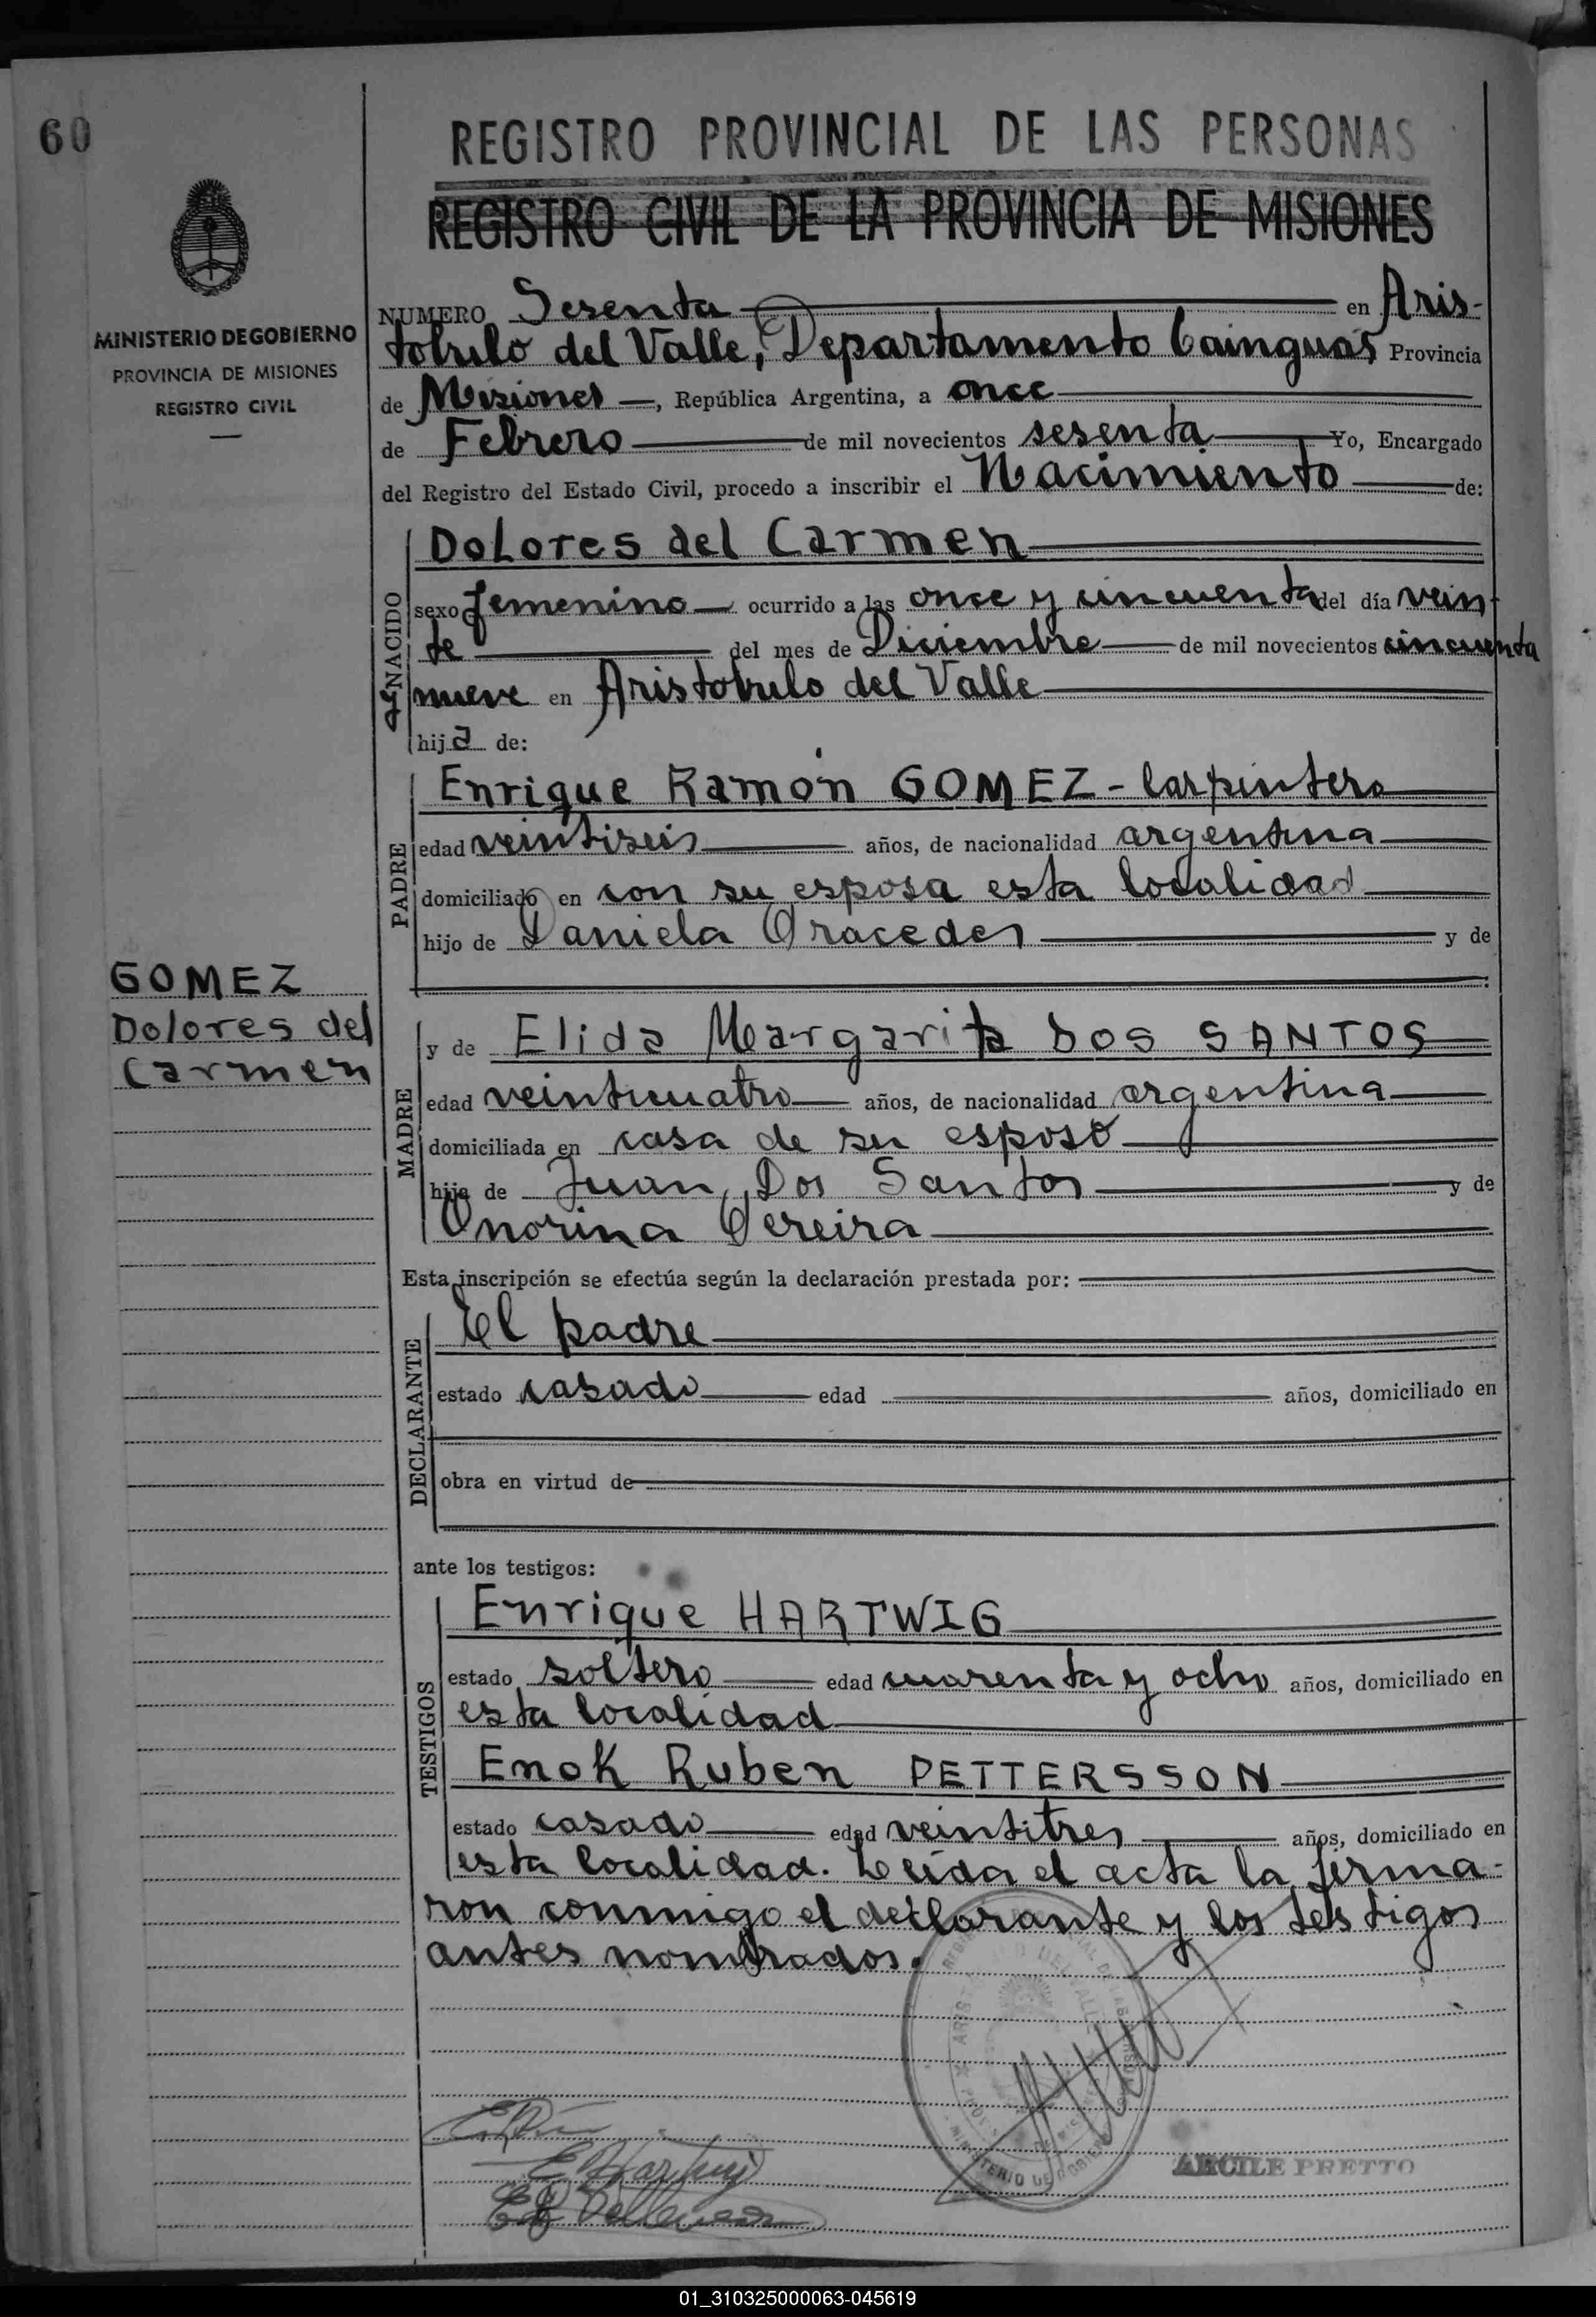 60
REGISTRO PROVINCIAL DE LAS PERSONAS
REGISTRO CIVIL DE LA PROVINCIA DE MISIONES
MINISTERIO DE GOBIERNO
PROVINCIA DE MISIONES
REGISTRO CIVIL
NUMERO Sesenta en Aris-
tobulo del Valle, Departamento Cainguás Provincia
de Misiones, República Argentina, a once
de Febrero de mil novecientos sesenta Yo, Encargado
del Registro del Estado Civil, procedo a inscribir el Nacimiento de:
NACIDO
Dolores del Carmen
sexo femenino ocurrido a las once y cincuenta del día vein
te del mes de Diciembre de mil novecientos cincuenta
nueve en Aristobulo del Valle
hija de:
PADRE
Enrique Ramón GOMEZ - Carpintero
edad veintiseis años, de nacionalidad argentina
domiciliado en con su esposa esta localidad
hijo de Daniela y de
GOMEZ
Dolores del
Carmen
MADRE
y de Elida Margarita DOS SANTOS
edad veinticuatro años, de nacionalidad argentina
domiciliada en casa de su esposo
hija de Juan Dos Santos y de
Onorina Pereira
Esta inscripción se efectúa según la declaración prestada por:
DECLARANTE
El padre
estado casado edad años, domiciliado en
obra en virtud de
ante los testigos:
TESTIGOS
Enrique HARTWIG
estado soltero edad cuarenta y ocho años, domiciliado en
esta localidad
Enok Ruben PETTERSSON
estado casado edad veintitres años, domiciliado en
esta localidad. Leida el acta la firma-
ron conmigo el declarante y los testigos
antes nombrados.
E Hartwig
ARCILE PRETTO
01_310325000063-045619